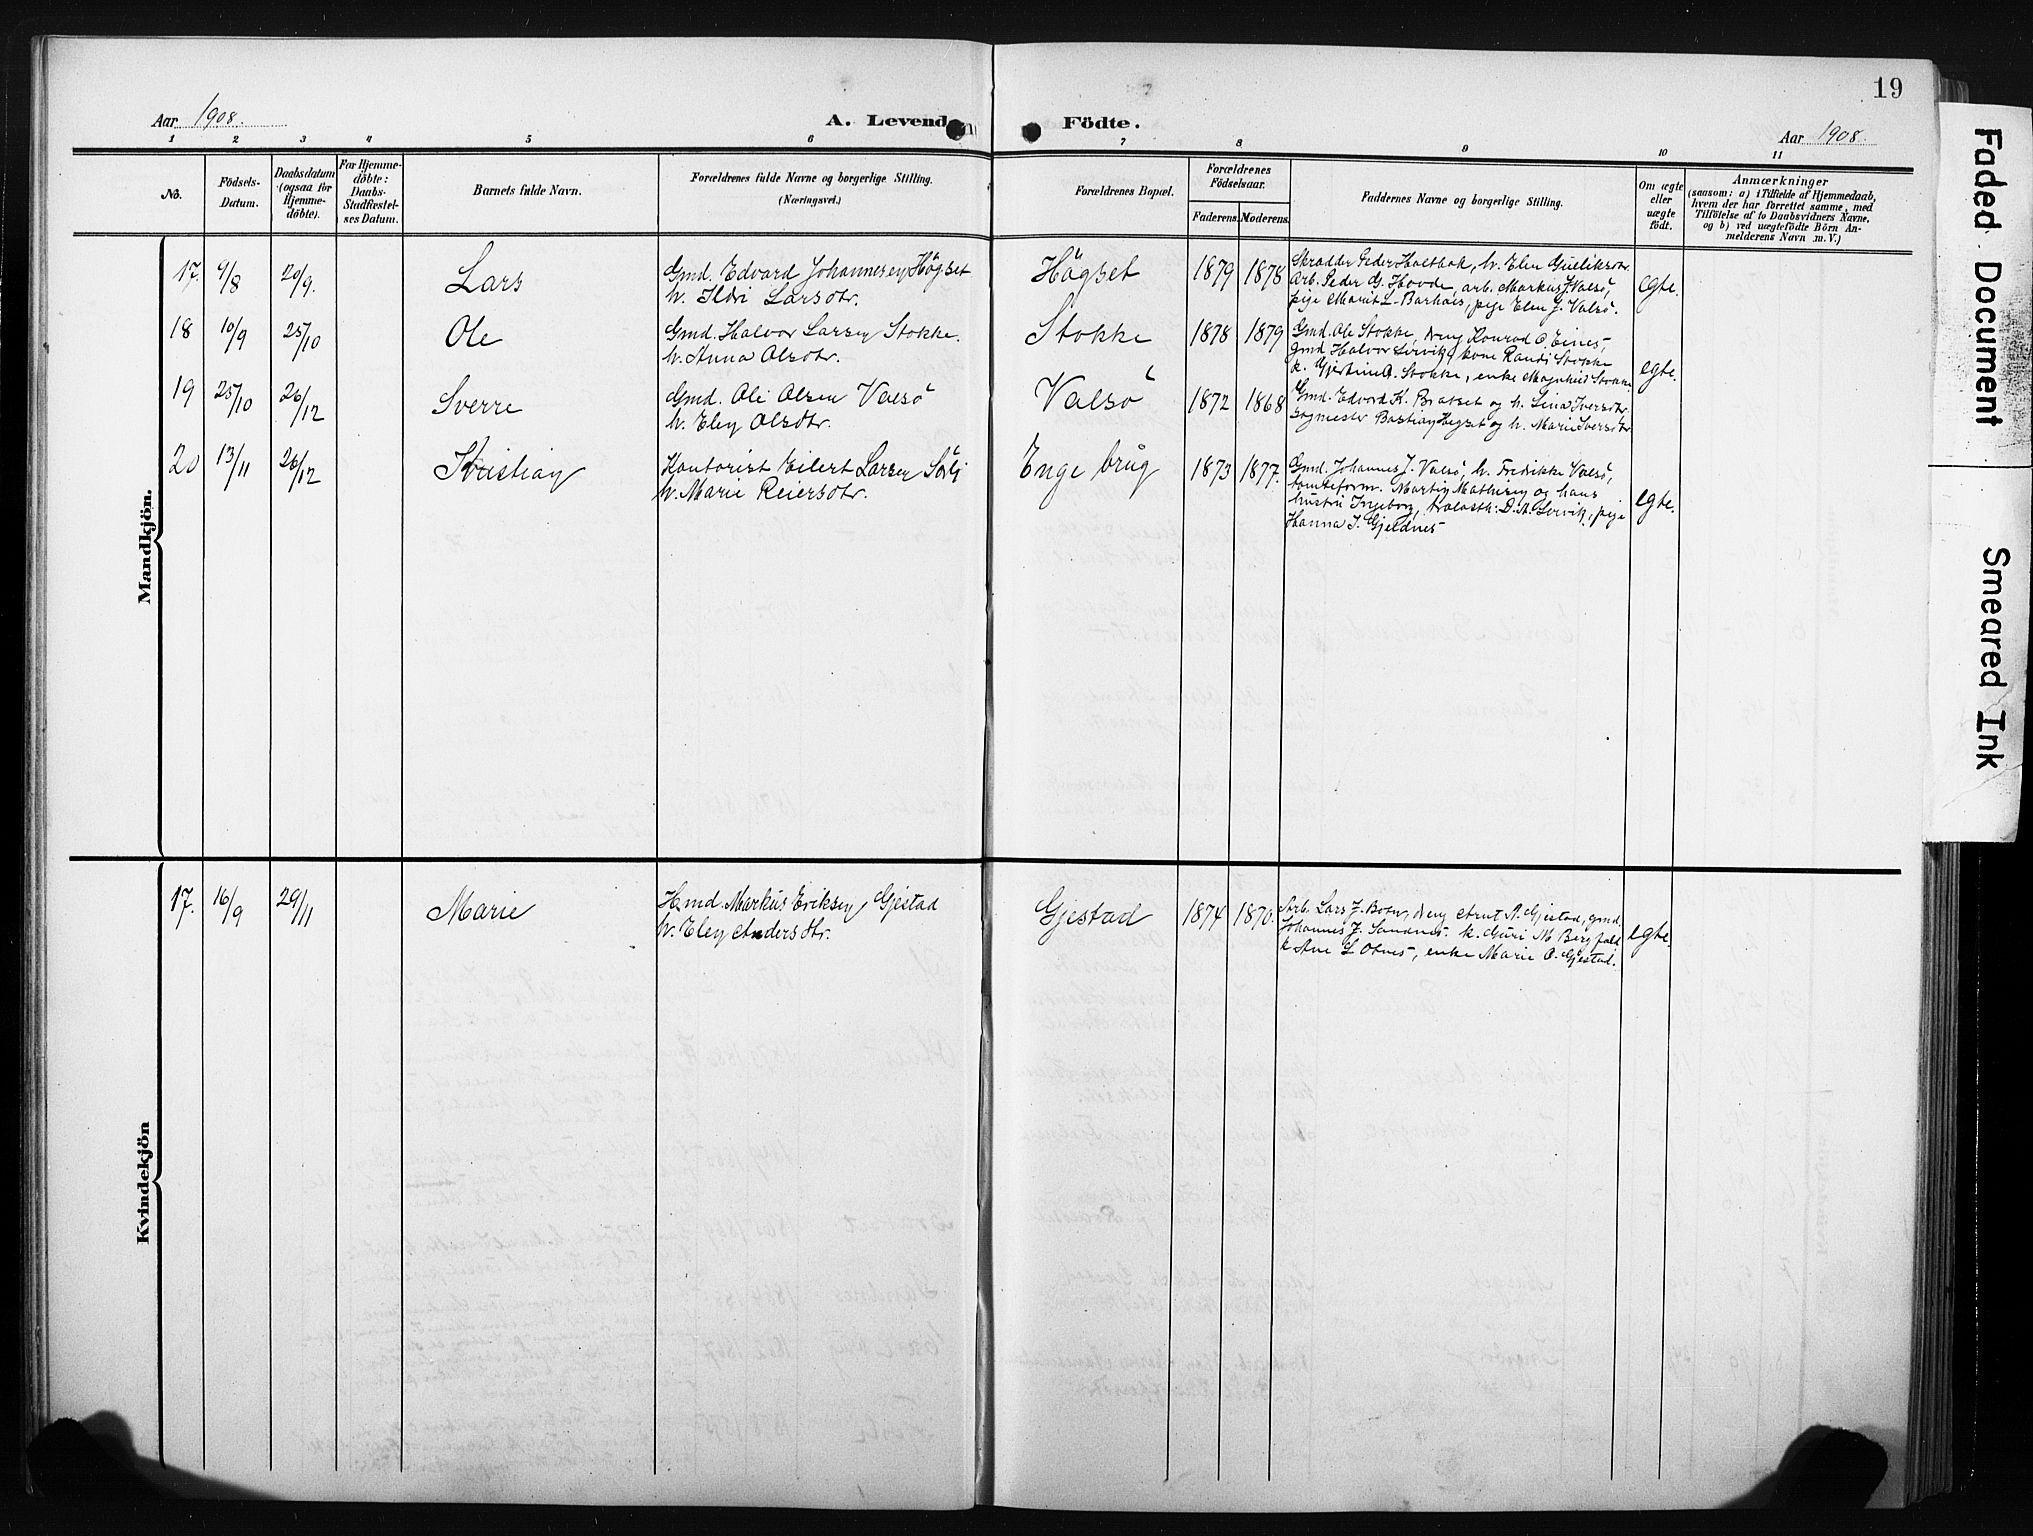 19
Aar 1908.
A. Levende
Födte.
Aar 1908.
1 2 3 4 5 6 7 8 9 10 11
No.
Födsels-
Datum.
Daabsdatum
(ogsaa for
Hjemme-
döbte).
For Hjemme-
döbte:
Daabs-
Stadfæstel-
ses Datum.
Barnets fulde Navn.
Forældrenes fulde Navne og borgerlige Stilling.
(Næringsvei.)
Forældrenes Bopæl.
Forældrenes
Födselsaar.
Faderens. Moderens.
Faddernes Navne og borgerlige Stilling.
Om ægte
eller
uægte
født.
Anmærkninger
(saasom: a) i Tilfælde af Hjemmedaab,
hvem der har forrettet samme, med
Tilföielse af to Daabsvidners Navne,
og b) ved uægtefödte Börn An-
melderens Navn m. V.)
Mandkjön.
17. 9/8 20/9. Lars
Gmd. Edvard Johannesen Högset
h. Ildri Larsdtr.
Högset 1879 1878
Skrædder Peder Holtbak, h. Elen
Arb. Peder G. Hovde, arb. Markus J. Valsö,
pige Marit L. Barhals, pige Elen J. Valsö.
egte.
18 10/9 25/10 Ole
Gmd. Halvor Larsen Stokke.
h. Anna Olsdtr.
Stokke 1878 1879
Gmd. Ole Stokke, dreng Konrad O. Eines,
gmd. Halvor Lervik, kone Randi Stokke
k. A. Stokke, enke Magnhild Stokke
egte.
19 25/10 26/12 Sverre
Gmd. Ole Olsen Valsö
h. Elen Olsdtr.
Valsö 1872 1868
Gmd. Edvard K. Bratset og h. Lina Iversdtr.
sagmester Bastian Högset og h. Marie Iversdtr.
20 13/11 26/12 Kristian
Kontorist Eilert Larsen
h. Marie Reiersdtr.
Enge brug 1873 1877.
Gmd. Johannes J. Valsö, h. Fredrikke Valsö,
tomteform. Martin Mathisen og hans
hustru Ingeborg, D. A. Lervik, pige
Hanna J. Gjeldnes
egte.
Kvindekjön
17. 16/9 29/11 Marie
Hmd. Markus Eriksen Gjestad
h. Elen Andersdtr.
Gjestad 1874 1870.
Arb. Lars J. Botn, dreng Arnt A. Gjestad, gmd.
Johannes J. Sandnes. k. Guri M. Bergfald
k. Ane L. Otnes, enke Marie O. Gjestad.
egte.
Faded Document
Smeared Ink